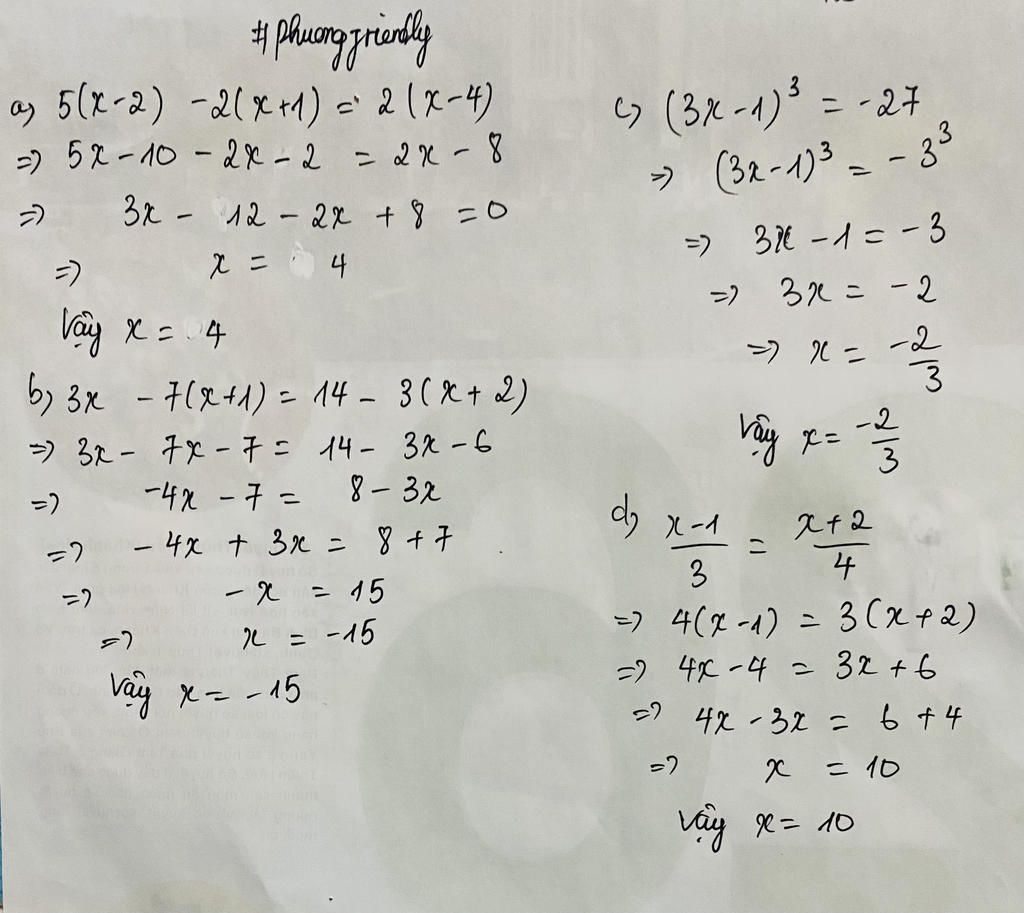 #phuongfriendly
a) 5(x-2) -2(x+1) = 2(x-4)
=> 5x-10-2x-2 = 2x-8
=> 3x - 12 - 2x + 8 = 0
=> x = 4
Vậy x = 4
b) 3x - 7(x+1) = 14 - 3(x+2)
=> 3x - 7x - 7 = 14 - 3x - 6
=> -4x - 7 = 8 - 3x
=> - 4x + 3x = 8 + 7
=> - x = 15
=> x = -15
Vậy x = -15
c) (3x-1)³ = -27
=> (3x-1)³ = -3³
=> 3x - 1 = -3
=> 3x = -2
=> x = -2/3
Vậy x = -2/3
d) x-1/3 = x+2/4
=> 4(x-1) = 3(x+2)
=> 4x-4 = 3x+6
=> 4x-3x = 6+4
=> x = 10
Vậy x = 10